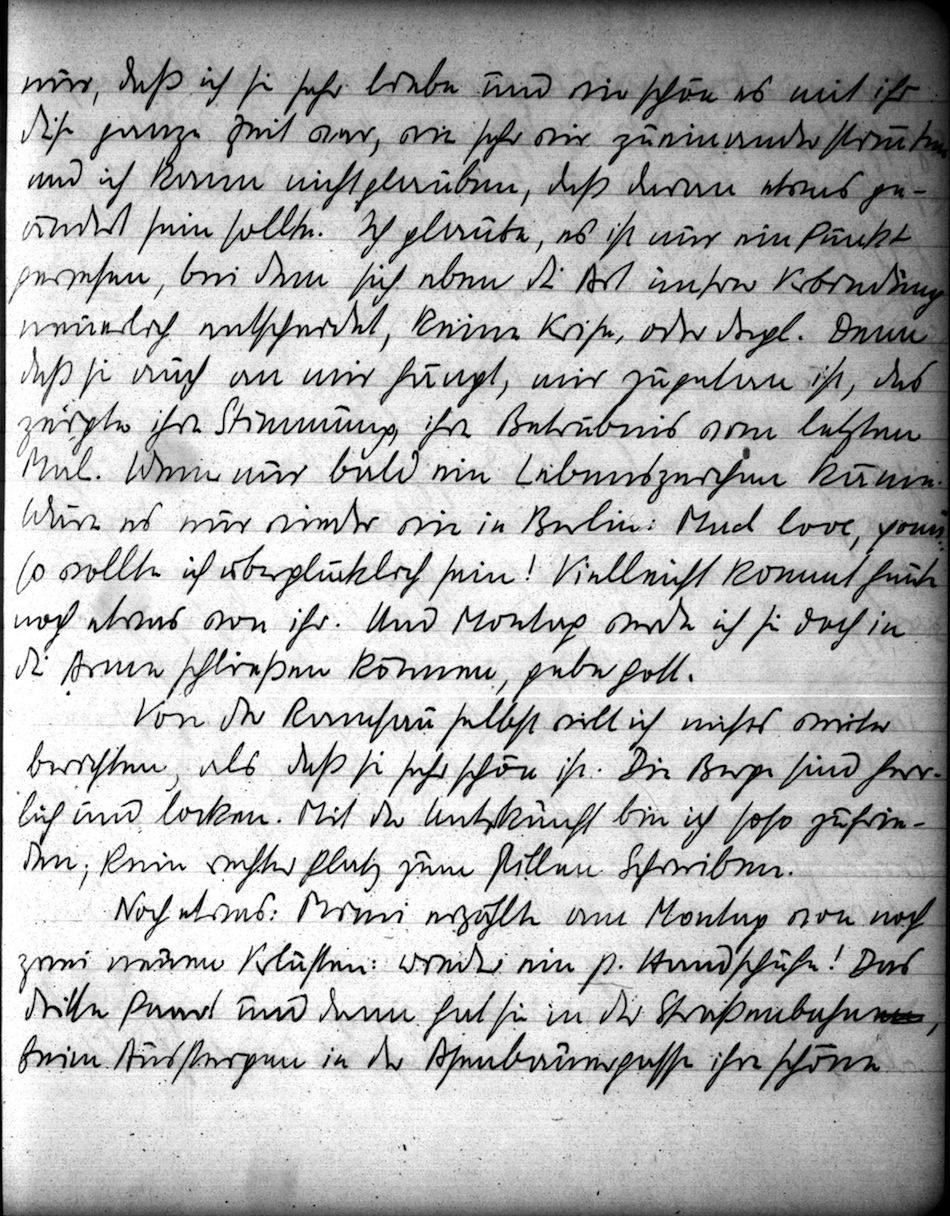 nur, daß ich sie sehr liebe und wie schön es mit ihr
diese ganze Zeit war, wie sehr wir zueinander strebten
und ich kann nicht glauben, daß daran etwas ge-
ändert sein sollte. Ich glaube, es ist nur ein Punkt
gewesen, bei dem sich eben die Art unsrer Verbindung
neuerlich entscheidet, keine Krise, oder dergl. Denn
daß sie auch an mir hängt, mir zugetan ist, das
zeigte ihre Stimmung, ihre Betrübnis vom letzten
Mal. Wenn nur bald ein Lebenszeichen käme.
Wäre es nur wieder wie in Berlin: Much love, yours
so wollte ich überglücklich sein! Vielleicht kommt heute
noch etwas von ihr. Und Montag werde ich sie doch in
die Arme schließen können, gebe Gott.
Von der Ramsau selbst will ich nichts weiter
berichten, als daß sie sehr schön ist. Die Berge sind herr-
lich und locken. Mit der Unterkunft bin ich soso zufrie-
den; kein rechter Platz zum stillen Schreiben.
Noch etwas: erzählte am Montag von noch
zwei neuen Verlusten: wieder ein p. Handschuhe! Das
dritte Paar! und dann hat sie in der Straßenbahn,
beim Aussteigen in der ihre schöne